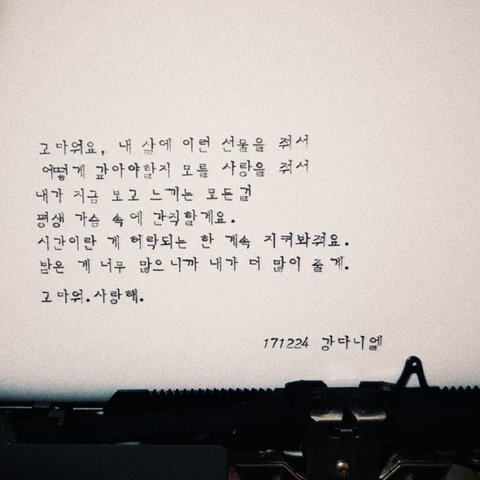 고마워요, 내 삶에 이런 선물을 줘서
어떻게 갚아야할지 모를 사랑을 줘서
내가 지금 보고 느끼는 모든걸
평생 가슴 속에 간직할게요.
시간이란 게 허락되는 한 계속 지켜봐줘요.
받은 게 너무 많으니까 내가 더 많이 줄게.
고마워.사랑해.
171224 강다니엘